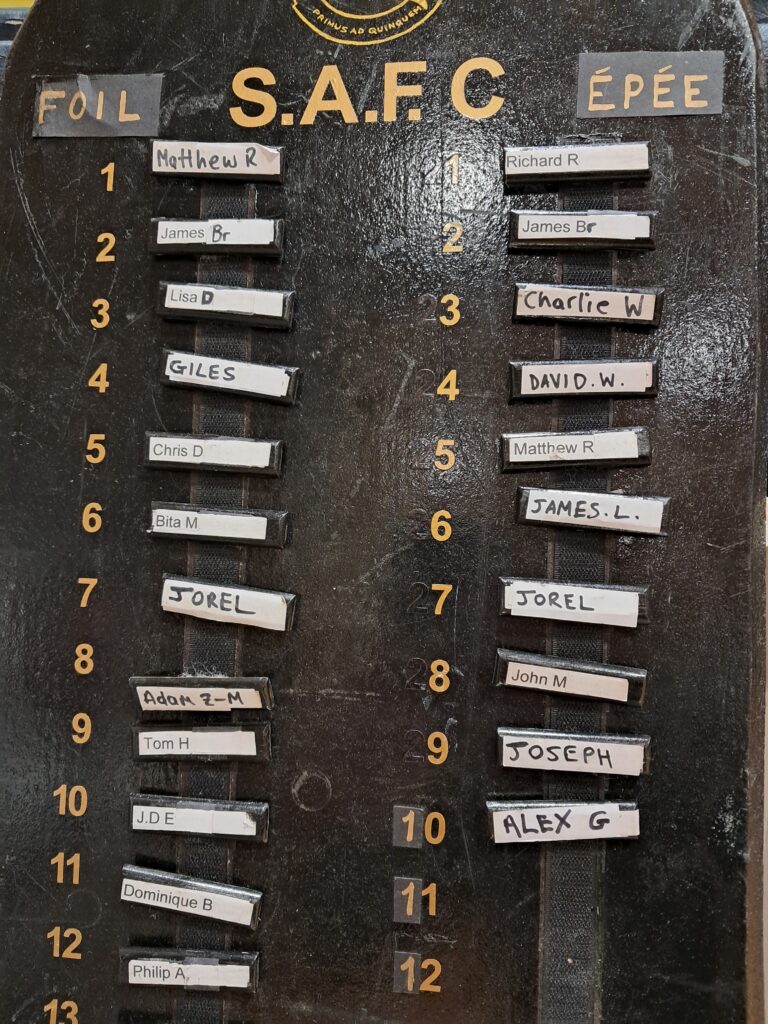 PRIMUS AD QUINQUEM
FOIL S.A.F.C ÉPÉE
1 Matthew R 1 Richard R
2 James Br 2 James Br
3 Lisa D 3 Charlie W
4 GILES 4 DAVID.W.
5 Chris D 5 Matthew R
6 Bita M 6 JAMES.L.
7 JOREL 7 JOREL
8 Adam Z-M 8 John M
9 Tom H 9 JOSEPH
10 J.D E 10 ALEX G
11 Dominique B 11
12 Philip A 12
13